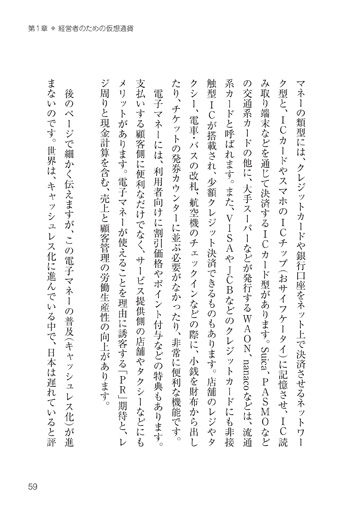 第1章 ◆ 経営者のための仮想通貨
マネーの類型には、クレジットカードや銀行口座をネット上で決済させるネットワー
ク型と、ICカードやスマホのICチップ（おサイフケータイ）に記憶させ、IC読
み取り端末などを通じて決済するICカード型があります。Suica、PASMOなど
の交通系カードの他に、大手スーパーなどが発行するWAON、nanacoなどは、流通
系カードと呼ばれます。また、VISAやJCBなどのクレジットカードにも非接
触型ICが搭載され、少額クレジット決済できるものもあります。店舗のレジやタ
クシー、電車・バスの改札、航空機のチェックインなどの際に、小銭を財布から出し
たり、チケットの発券カウンターに並ぶ必要がなかったり、非常に便利な機能です。
電子マネーには、利用者向けに割引価格やポイント付与などの特典もあります。
支払いする顧客側に便利なだけでなく、サービス提供側の店舗やタクシーなどにも
メリットがあります。電子マネーが使えることを理由に誘客する「PR」期待と、レ
ジ周りと現金計算を含む、売上と顧客管理の労働生産性の向上があります。
後のページで細かく伝えますが、この電子マネーの普及（キャッシュレス化）が進
まないのです。世界は、キャッシュレス化に進んでいる中で、日本は遅れていると評
59